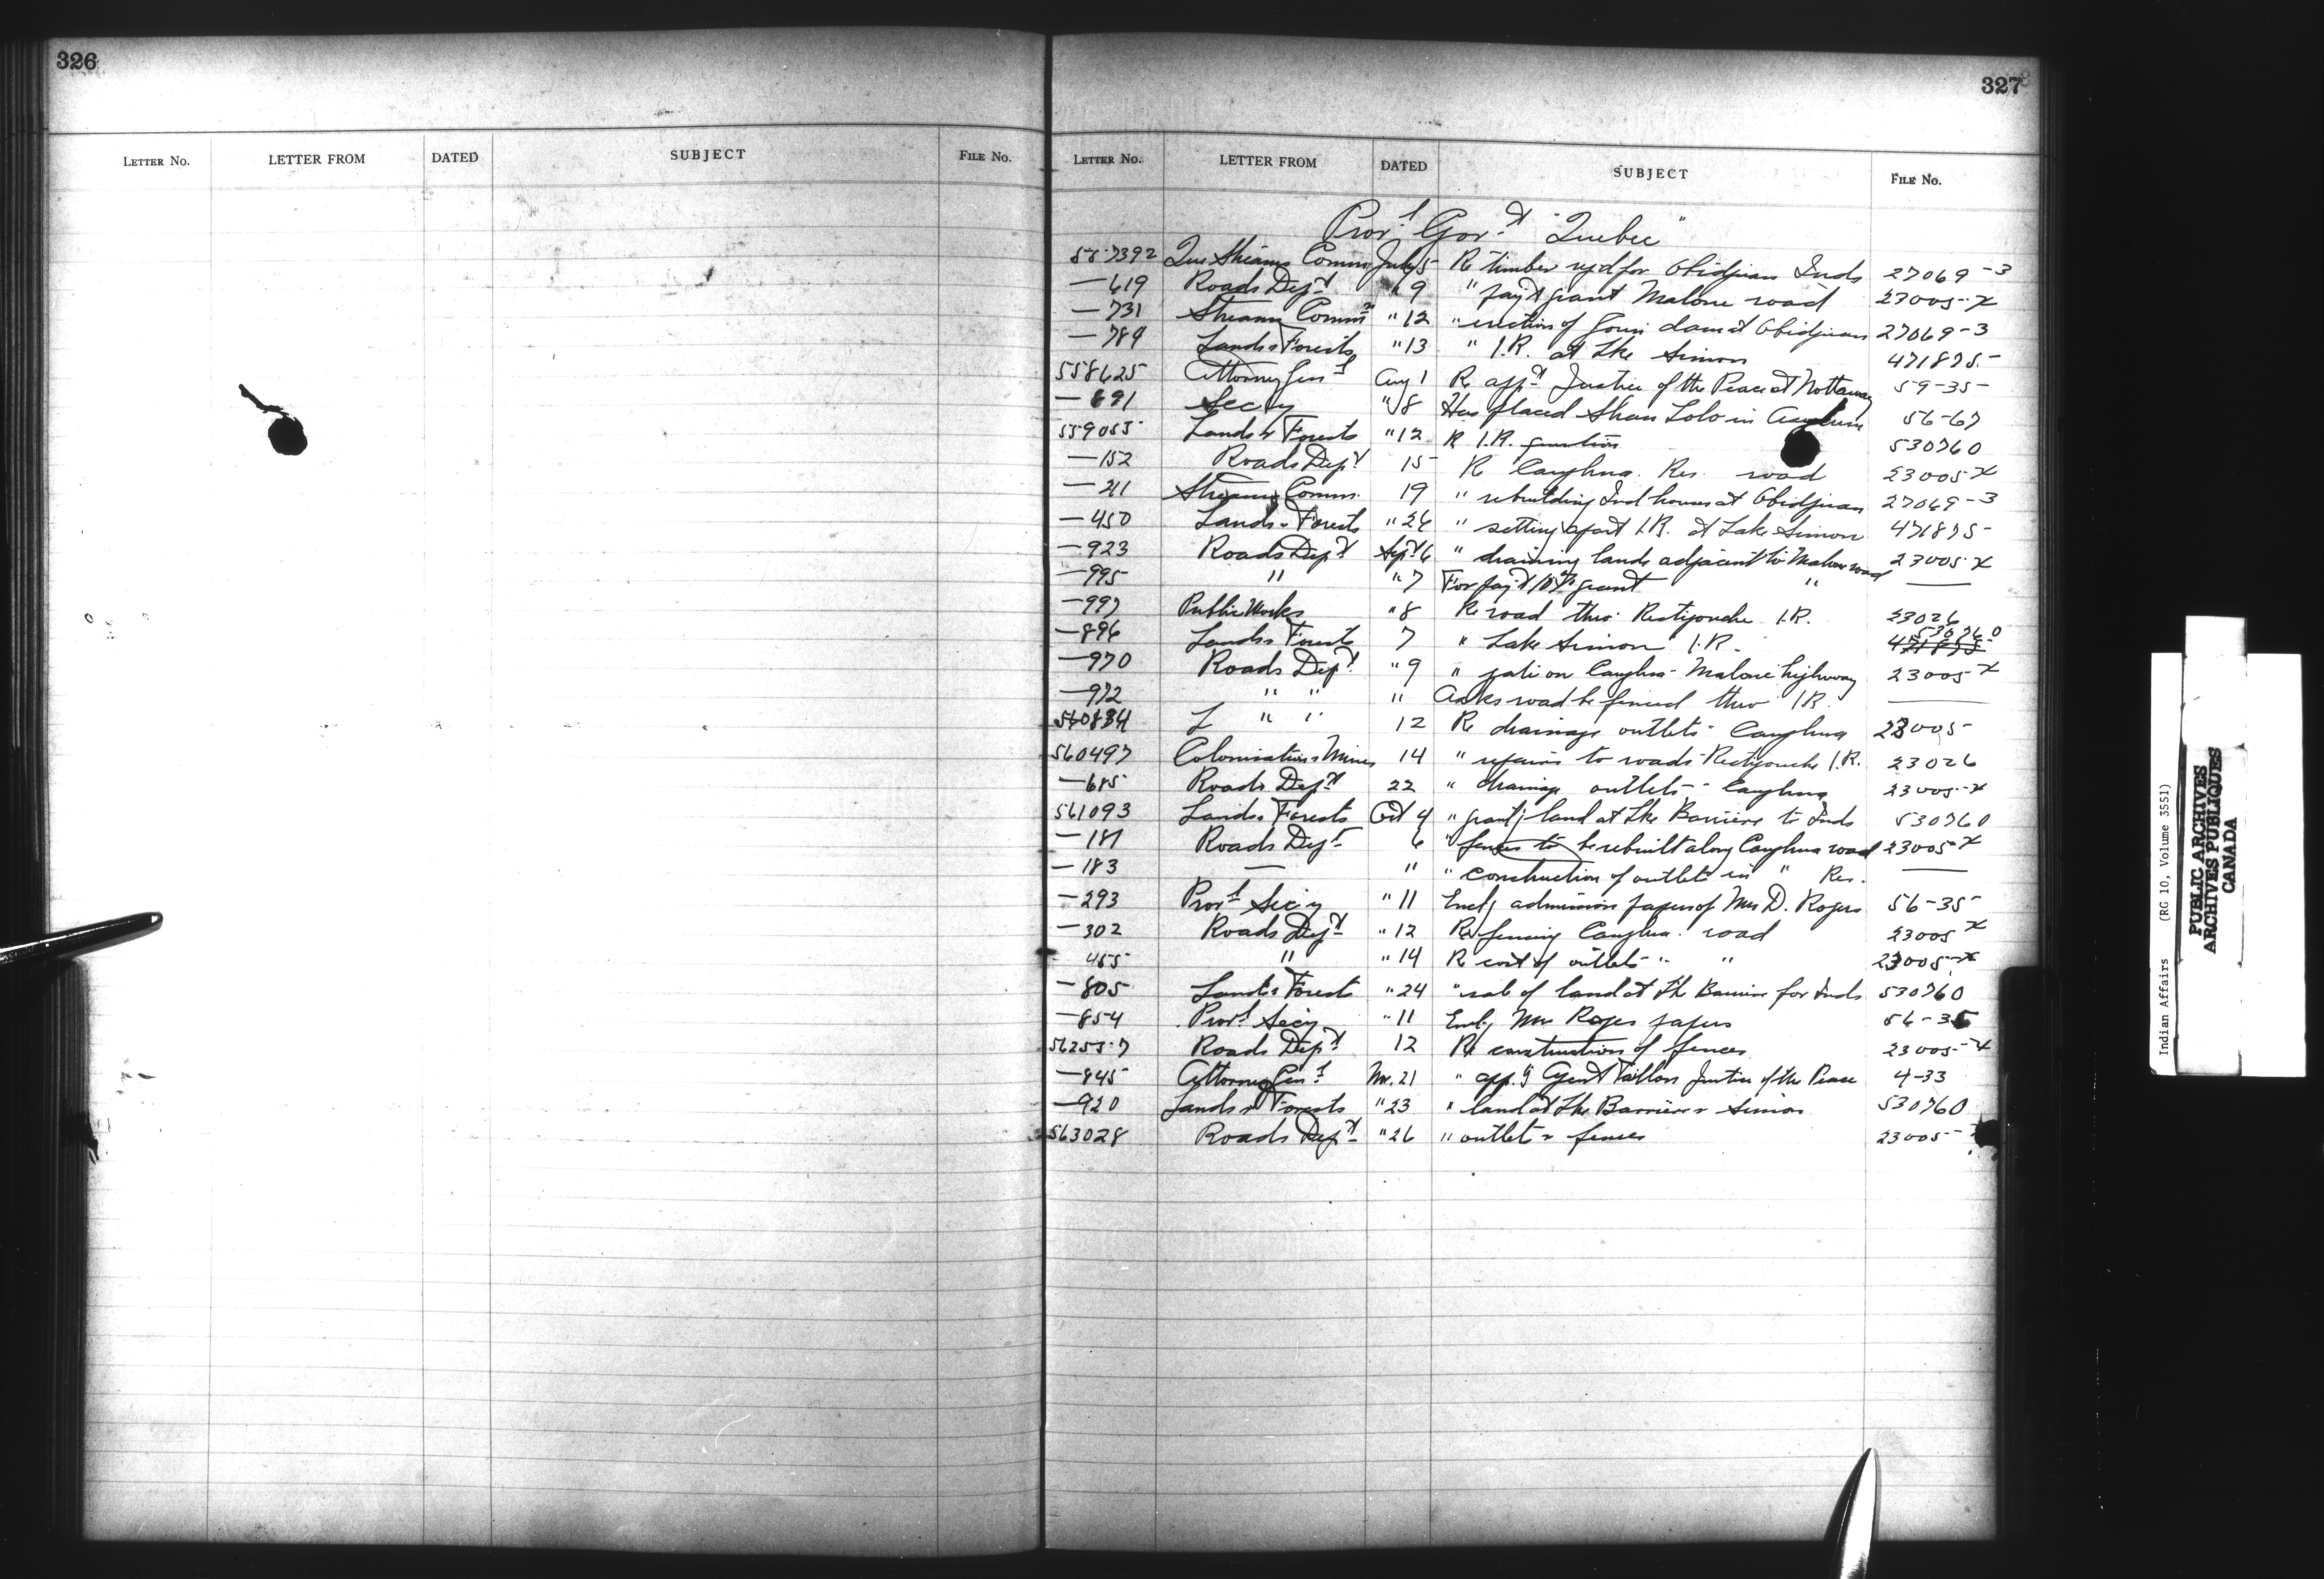 326
LETTER NO. LETTER FROM DATED SUBJECT FILE No.
327
LETTER No. LETTER FROM DATED SUBJECT FILE No.
Provl Govt "Quebec"
557392 Que Streams Comm July 5 Re timber req'd for Obidjuan Inds 27069-3
—619 Roads Dept " 9 " pay't grant Malone road 23005-X
—731 Streams Commn " 12 " erection of Gouin dam at Obidjuan 27069-3
—789 Lands & Forests " 13 " I.R. at Lke Simon 471875
558625 Attorney Genl Aug 1 Re appt Justice of the Peace at Nottaway 59-35
—691 Secy " 8 Has placed Shan Lolo in Asylum 56-67
559055 Lands & Forests " 12 R I.R. question 530760
—152 Roads Dept 15 Re Caughna. Res. road 23005 X
—211 Streams Comm. 19 " rebuilding Ind houses at Obidjuan 27069-3
—450 Lands & Forests " 26 " setting apart I.R. at Lake Simon 471875
—923 Roads Dept Sept 6 " draining lands adjacent to Malone road 23005 X
—995 " " 7 For pay't grant " —
—997 Public Works " 8 Re road thro Restigouche I.R. 23026
—896 Lands & Forests 7 " Lake Simon I.R. 471875 530760
—970 Roads Dept " 9 " gate on Caughna- Malone highway 23005 X
—972 " " " Asks road be fenced thro I.R. —
560884 " " 12 Re drainage outlets - Caughna 23005
560497 Colonisation & Mines 14 " repairs to roads - Restigouche I.R. 23026
—685 Roads Dept 22 " drainage outlets - Caughna 23005-X
561093 Lands & Forests Oct 4 " grant'g land at Lke Barriere to Inds 530760
—181 Roads Dept 6 " fences to be rebuilt along Caughna road 23005-X
—183 — " " construction of outlets in " Res. —
—293 Provl Secy " 11 Encl'g admission papers of Mrs D. Rogers 56-35
—302 Roads Dept " 12 Re fencing Caughna. road 23005 X
- 455 " " 14 Re cost of outlets " " 23005-X
—805 Lands & Forests " 24 " sale of land at Lke Barriere for Inds 530760
—854 Provl Secy " 11 Encl'g Mrs Rogers papers 56-35
562557 Roads Dept 12 Re construction of fences 23005-X
—845 Attorney Genl Nov. 21 " app'g Agent Taillon Justice of the Peace 4-33
—920 Lands & Forests " 23 " land at Lke Barriere & Simon 530760
563028 Roads Dept " 26 " outlets & fences 23005-
Indian Affairs (RG 10, Volume 3551)
PUBLIC ARCHIVES
ARCHIVES PUBLIQUES
CANADA